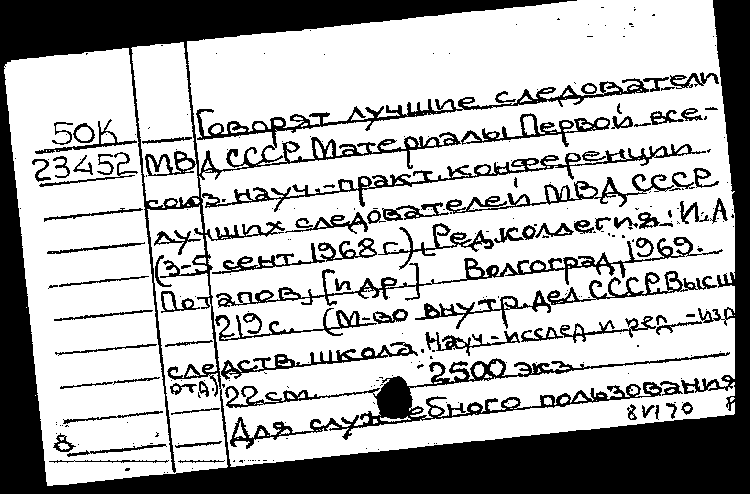 50К Говорят лучшие следователи
23452 МВД СССР. Материалы Первой все-
союз. науч.-практ. конференции
лучших следователей МВД СССР
(3-5 сент. 1968 г.) Ред.коллегия: И.А.
Потапов, [и др.]. Волгоград, 1969.
219 с. (М-во внутр. дел СССР. Высш
следств. школа. Науч.-исслед и ред -изд
отд.) 22 cm. 2500 экз.
Для служебного пользования
8 8 VI 70